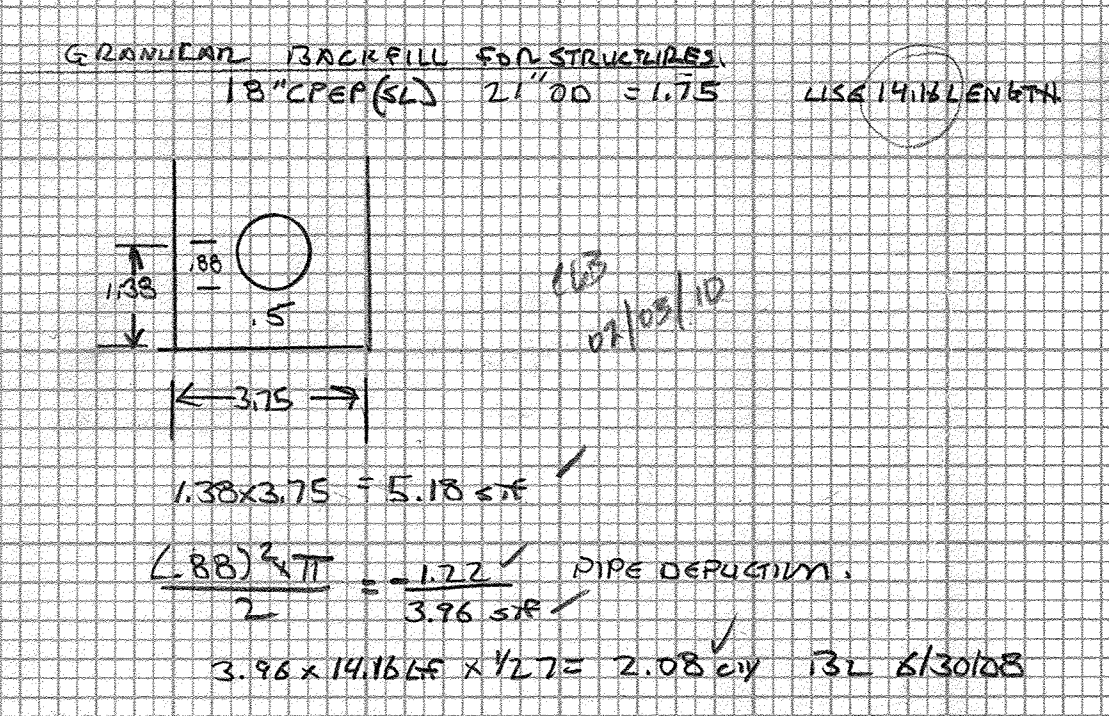 GRANULAR BACKFILL FOR STRUCTURES.
18" CPEP(SL) 21" OD = 1.75 USE 14.16 LENGTH.
.88
1.38
.5
02/03/10
3.75
1.38x3.75 = 5.18 sf
(.88)² x π / 2 = -1.22 PIPE DEDUCTION.
3.96 sf
3.96 x 14.16 LF x 1/27 = 2.08 cy 6/30/08